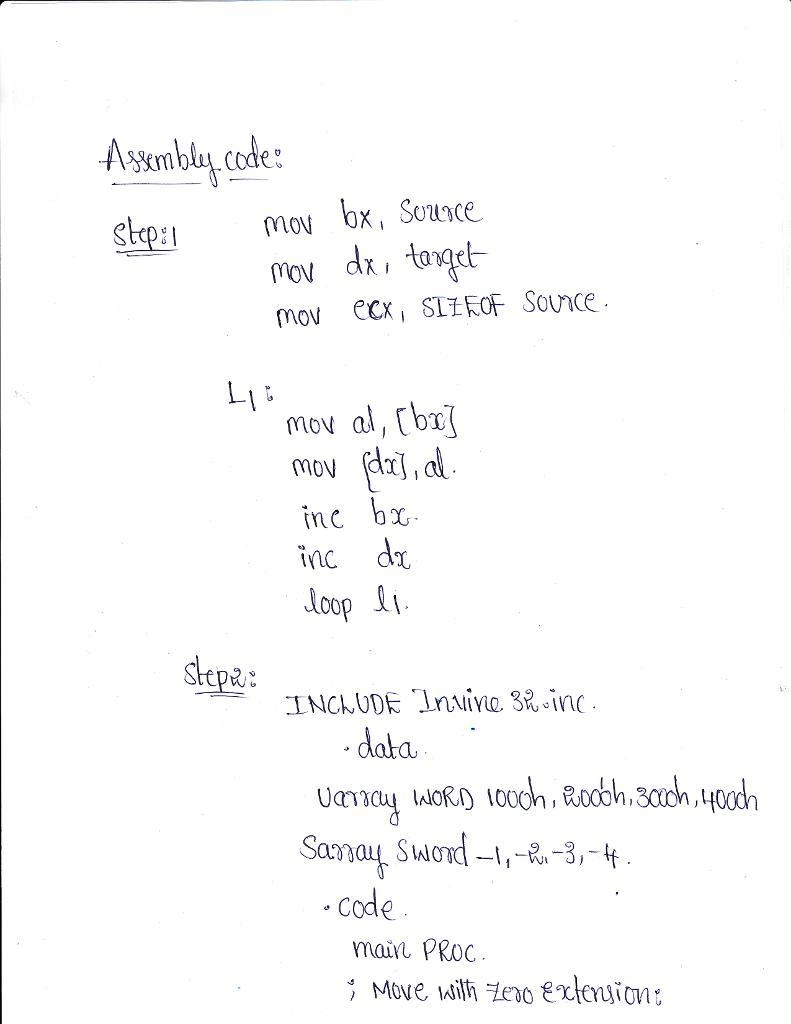 Assembly code:
Step:1 mov bx, Source
mov dx, target
mov ecx, SIZEOF Source.
L1:
mov al, [bx]
mov [dx], al.
inc bx.
inc dx
loop l1.
Step2:
INCLUDE Irvine 32.inc.
.data.
Uarray WORD 1000h, 2000h, 3000h, 4000h
Sarray Sword -1, -2, -3, -4.
.code.
main PROC.
; Move with zero extension: